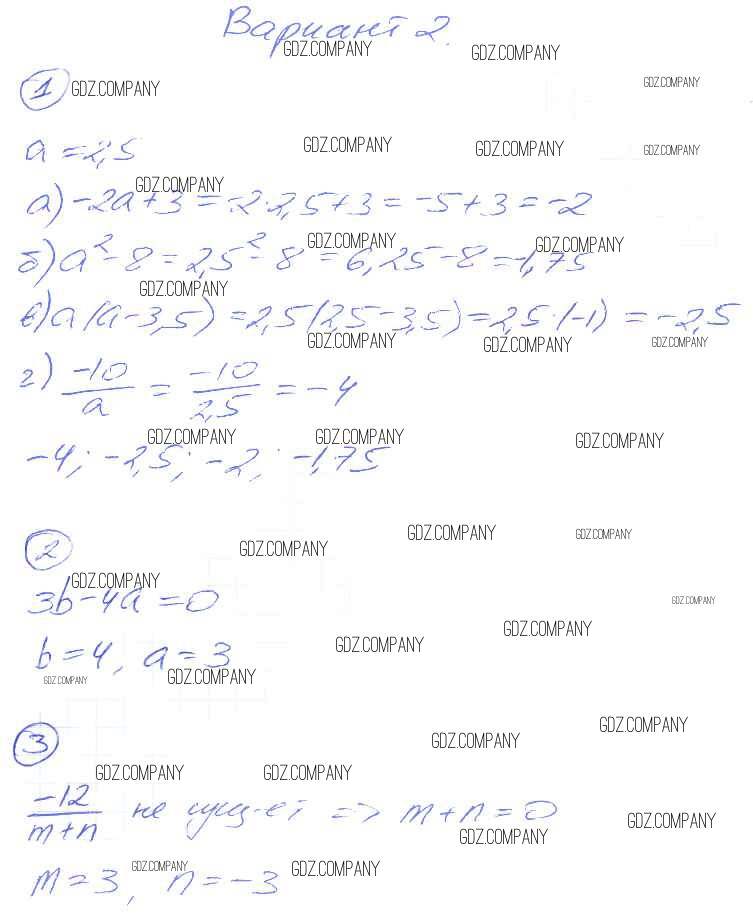 Вариант 2.
GDZ.COMPANY GDZ.COMPANY
① GDZ.COMPANY GDZ.COMPANY
a = 2,5 GDZ.COMPANY GDZ.COMPANY GDZ.COMPANY
GDZ.COMPANY
а) -2a+3 = -2·2,5+3 = -5+3 = -2
GDZ.COMPANY GDZ.COMPANY
б) a² - 8 = 2,5² - 8 = 6,25 - 8 = -1,75
GDZ.COMPANY
в) a(a-3,5) = 2,5(2,5-3,5) = 2,5·(-1) = -2,5
GDZ.COMPANY GDZ.COMPANY GDZ.COMPANY
г) -10/a = -10/2,5 = -4
GDZ.COMPANY GDZ.COMPANY GDZ.COMPANY
-4; -2,5; -2; -1,75
GDZ.COMPANY GDZ.COMPANY
② GDZ.COMPANY
GDZ.COMPANY
3b-4a = 0 GDZ.COMPANY
GDZ.COMPANY
b = 4, a = 3 GDZ.COMPANY
GDZ.COMPANY GDZ.COMPANY
GDZ.COMPANY
③ GDZ.COMPANY
GDZ.COMPANY GDZ.COMPANY
-12/m+n не сущ-ет => m+n = 0 GDZ.COMPANY
GDZ.COMPANY
GDZ.COMPANY GDZ.COMPANY
m = 3, n = -3